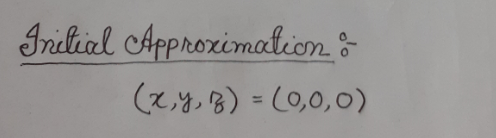 Initial Approximation :-
(x, y, z) = (0,0,0)